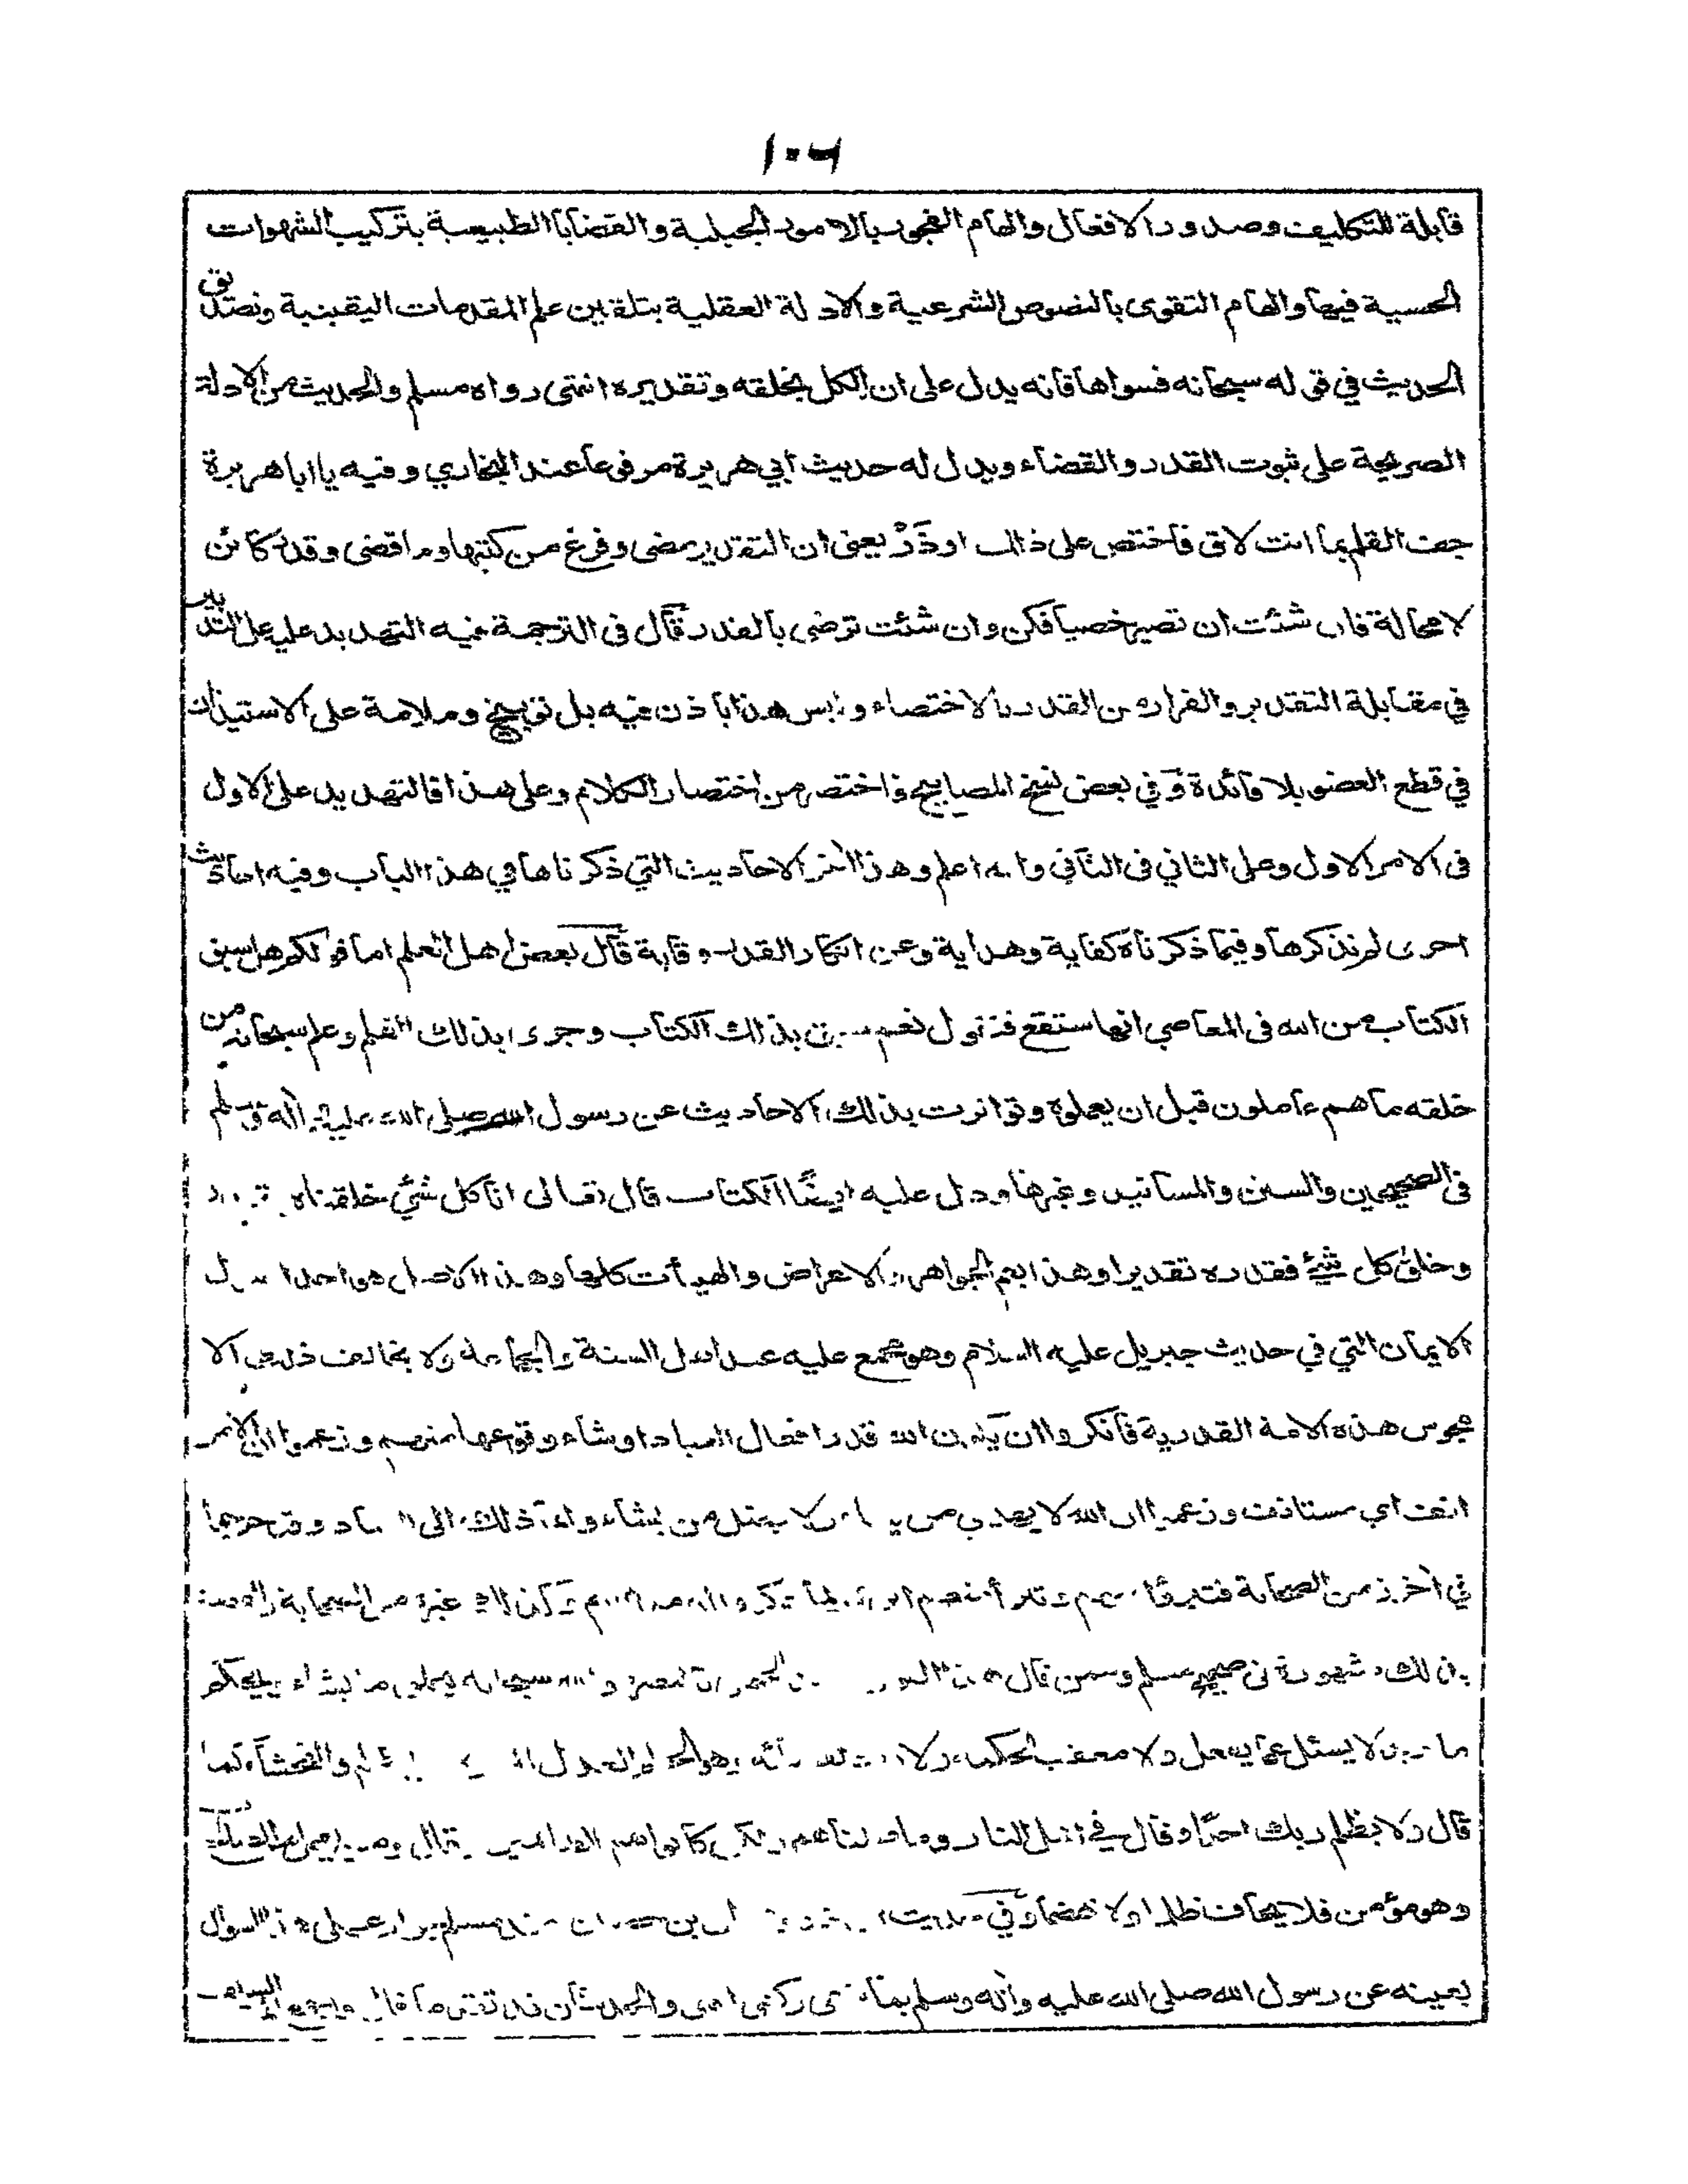 ١٠٦
قابلة للتكليف وصدور الافعال والهام الفجور بالامور الجبلية والقضايا الطبيعية بتركيب الشهوات
الحسية فيها والهام التقوى بالنصوص الشرعية والادلة العقلية بتلقين علم المقدمات اليقينية وتصديق
الحديث في قوله سبحانه فسواها فانه يدل على ان الكل بخلقه وتقديره انتهى رواه مسلم والحديث من الادلة
الصريحة على ثبوت القدر والقضاء ويدل له حديث ابي هريرة مرفوعا عند البخاري وفيه يا ابا هريرة
جف القلم بما انت لاق فاختص على ذلك او ذَرْ يعني ان التقدير مضى وفرغ من كتبها وما قضى وقدر كائن
لا محالة فان شئت ان تصير خصيا فكن وان شئت ترضى بالقدر قال فى الترجمة فيه التهديد عليه على التدبير
في مقابلة التقدير والفرار من القدر بالاختصاء وليس هذا باذن فيه بل توبيخ وملامة على الاستيذان
في قطع العضو بلا فائدة وفي بعض نسخ المصابيح فاختصر من اختصار الكلام وعلى هذا فالتهديد على الاول
فى الامر الاول وعلى الثاني فى الثاني والله اعلم وهذا اخر الاحاديث التي ذكرناها في هذا الباب وفيه احاديث
اخرى لم نذكرها وفيما ذكرناه كفاية وهداية وعن انكار القدر وقاية قال بعض اهل العلم اما قولكم هل سبق
الكتاب من الله فى المعاصي انها ستقع فنقول نعم سبق بذلك الكتاب وجرى بذلك القلم وعلم سبحانه من
خلقه ما هم عاملون قبل ان يعملوه وتواترت بذلك الاحاديث عن رسول الله صلى الله عليه وآله وسلم
فى الصحيحين والسنن والمسانيد وغيرها ودل عليه ايضًا الكتاب قال تعالى انا كل شيء خلقناه
وخلق كل شيء فقدره تقديرا وهذا يعم الجواهر والاعراض والهيأت كلها وهذا الاصل هو احد
الايمان التي في حديث جبريل عليه السلام وهو مجمع عليه عند اهل السنة والجماعة ولا يخالف ذلك الا
مجوس هذه الامة القدرية فانكروا ان يكون الله قدر افعال العباد او شاء وقوعها منهم وزعموا ان الامر
انف اي مستانف وزعموا ان الله لا يهدي من ولا يضل من يشاء وان ذلك الى
في اخر زمن الصحابة فتبرأ غيره من الصحابة
بذلك مشهورة فى صحيح مسلم وممن قال سبحانه يشاء
لا يسئل عما يفعل ولا معقب لحكمه ولا وهو العدل والفحشاء كما
قال ولا يظلم ربك احدًا وقال في اهل النار وما ظلمناهم ولكن كانوا هم الظالمين وقال ومن يعمل من الصالحات
وهو مؤمن فلا يخاف ظلما ولا هضما وفي حديث بن عند مسلم السؤال
بعينه عن رسول الله صلى الله عليه وآله وسلم